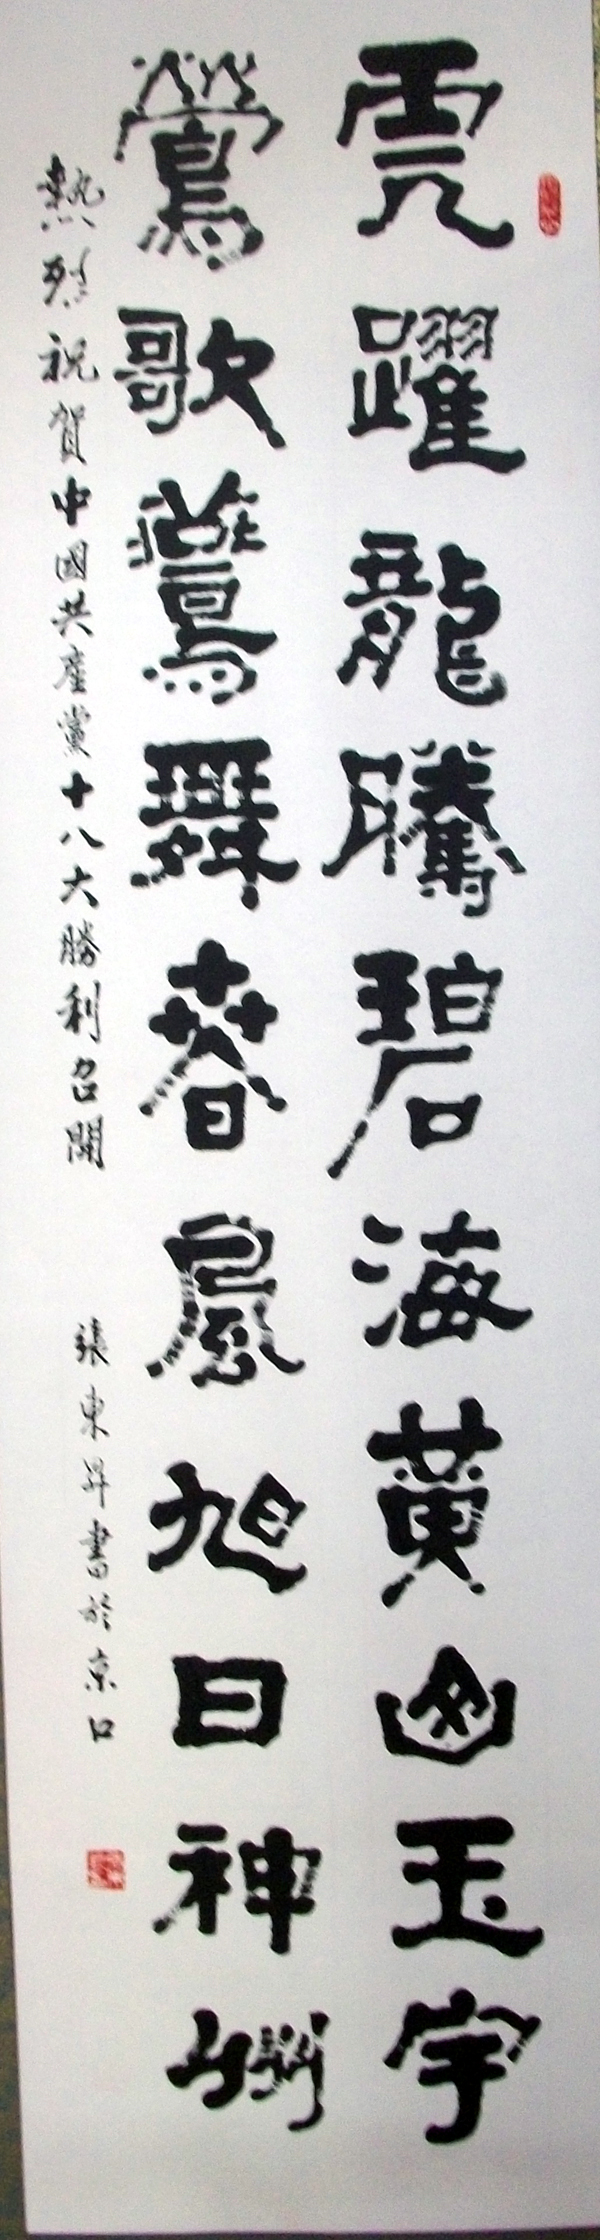 虎躍龍騰碧海黃山玉宇
鶯歌鷰舞春風旭日神州
熱烈祝賀中國共產黨十八大勝利召開
張東升書於京口